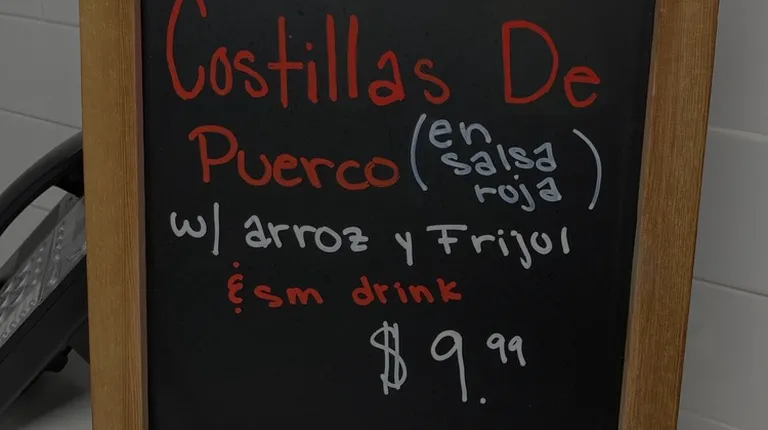 Costillas De
Puerco (en salsa roja)
w/ arroz y Frijol
& sm drink
$9.99